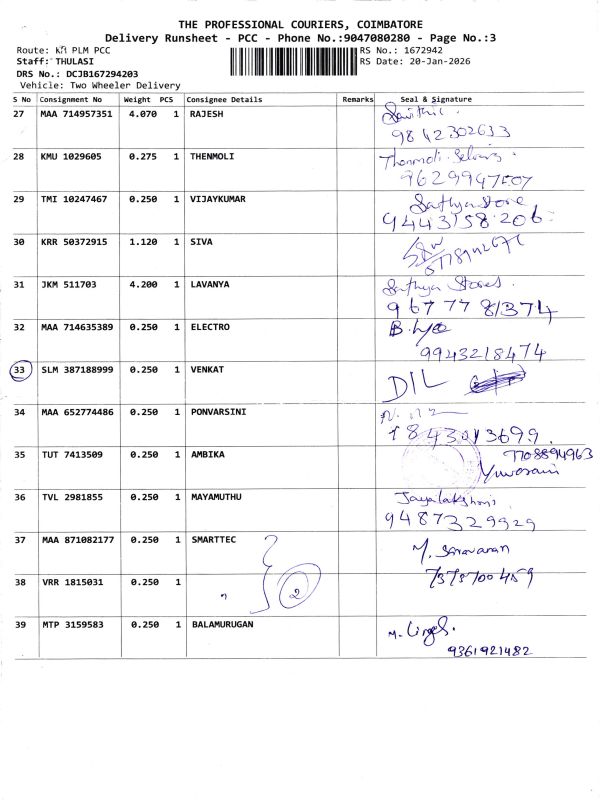 THE PROFESSIONAL COURIERS, COIMBATORE
Delivery Runsheet - PCC - Phone No.:9047080280 - Page No.:3
Route: PLM PCC
RS No.: 1672942
Staff: THULASI
RS Date: 20-Jan-2026
DRS No.: DCJB167294203
Vehicle: Two Wheeler Delivery
S No Consignment No Weight PCS Consignee Details Remarks Seal & Signature
27 MAA 714957351 4.070 1 RAJESH
9842302633
28 KMU 1029605 0.275 1 THENMOLI Thenmoli
29 TMI 10247467 0.250 1 VIJAYKUMAR Sathya Store
9443158206
30 KRR 50372915 1.120 1 SIVA
31 JKM 511703 4.200 1 LAVANYA Sathya Stores
9677781374
32 MAA 714635389 0.250 1 ELECTRO
9943218474
33 SLM 387188999 0.250 1 VENKAT DIL
34 MAA 652774486 0.250 1 PONVARSINI
35 TUT 7413509 0.250 1 AMBIKA 7708894963
Yuvarani
36 TVL 2981855 0.250 1 MAYAMUTHU Jayalakshmi
9487329929
37 MAA 871082177 0.250 1 SMARTTEC M. Saravanan
38 VRR 1815031 0.250 1 " 2
39 MTP 3159583 0.250 1 BALAMURUGAN
9361921482